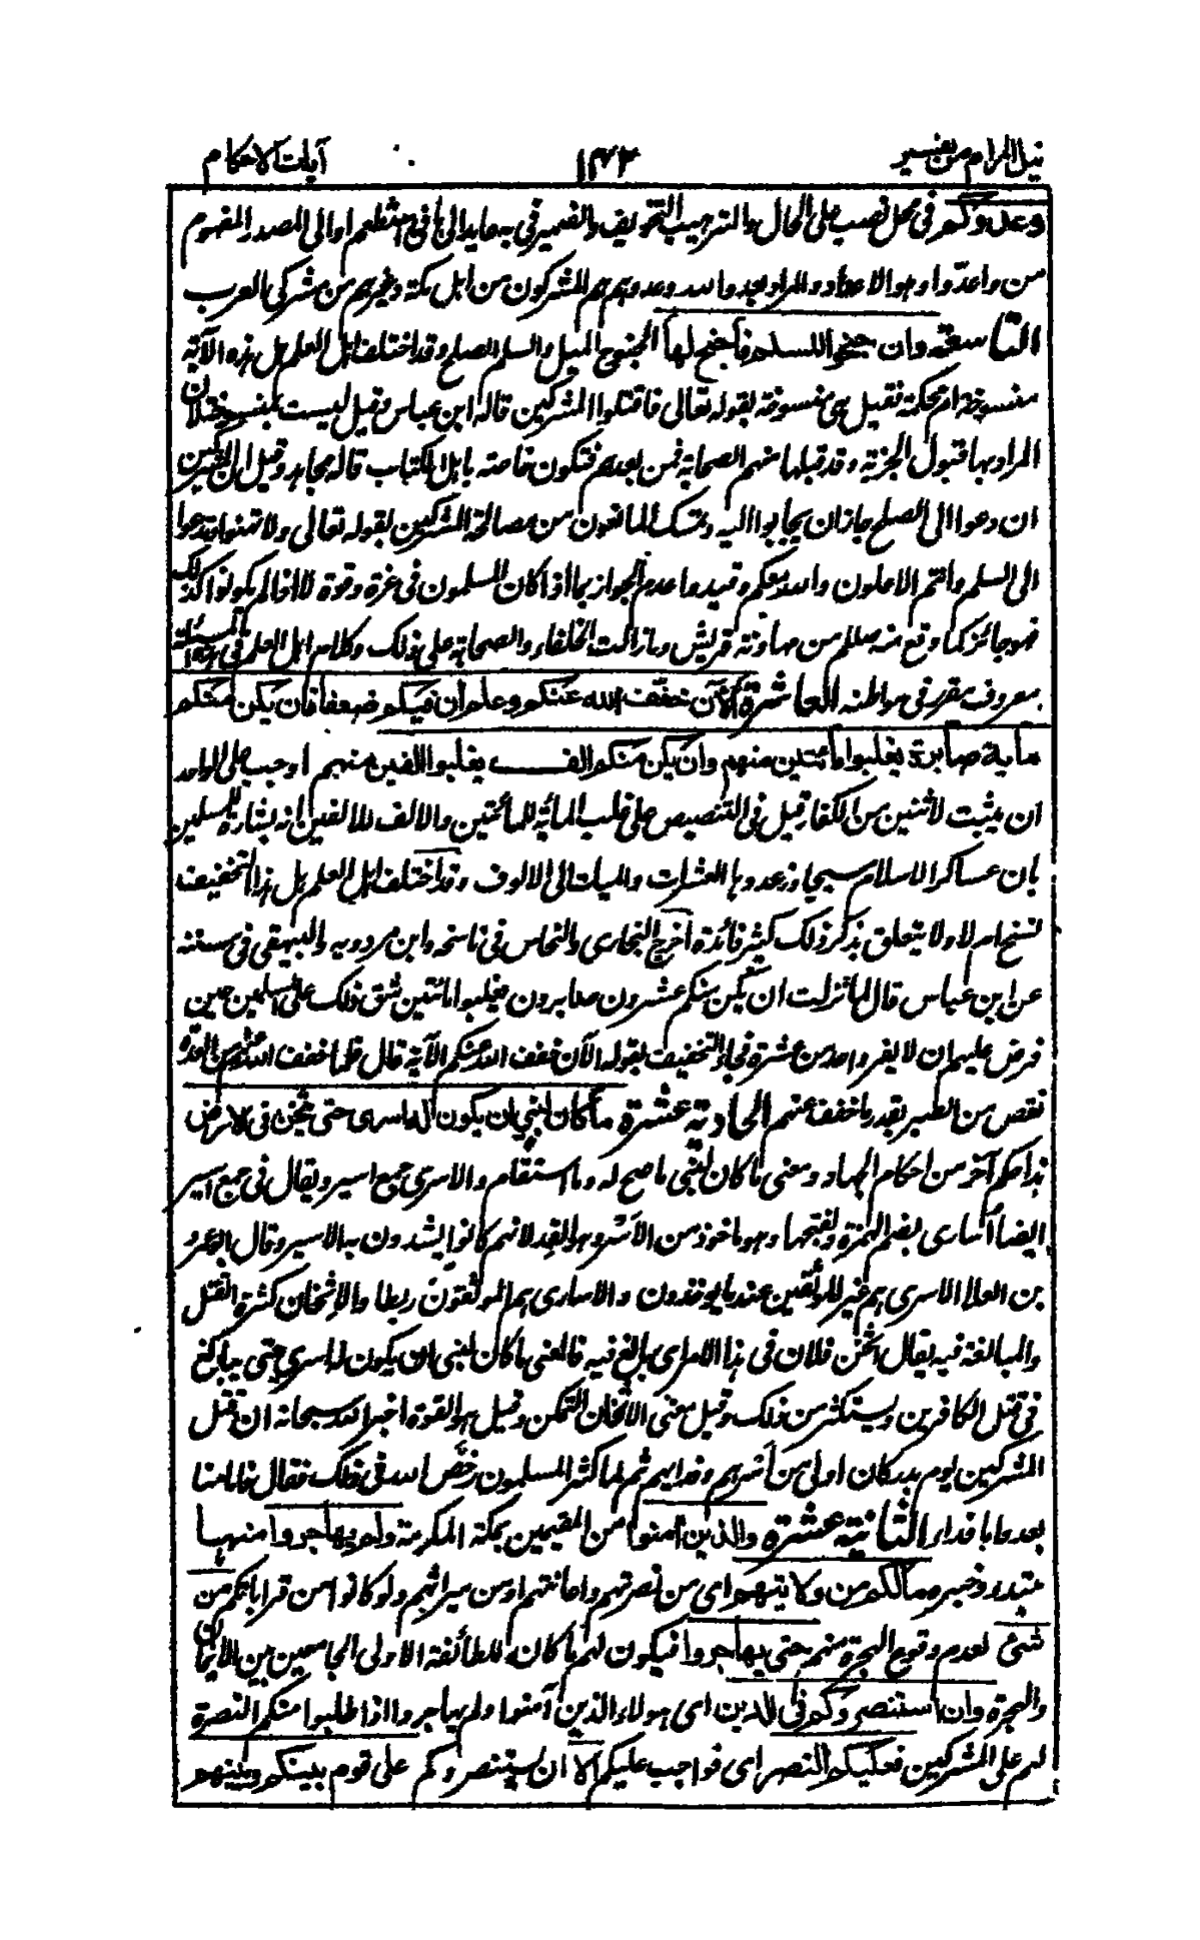 نيل المرام من تفسير ١٤٢ آيات الاحكام
وعدوكم في محل نصب على الحال والترهيب التخويف والضمير في به عايد الى ما في ما استطعتم او الى المصدر المفهوم
من واعدّوا وهو الاعداد والمراد بعدو الله وعدوهم هم المشركون من اهل مكة وغيرهم من مشركي العرب
التاسعة وان جنحوا للسلم فاجنح لها الجنوح الميل والسلم الصلح وقد اختلف اهل العلم هل هذه الآية
منسوخة ام محكمة فقيل هي منسوخة بقوله تعالى فاقتلوا المشركين قاله ابن عباس وقيل ليست بمنسوخة لان
المراد بها قبول الجزية وقد قبلها منهم الصحابة فمن بعدهم فتكون خاصة باهل الكتاب قاله مجاهد وقيل ان المشركين
ان دعوا الى الصلح جاز ان يجابوا اليه وتمسك المانعون من مصالحة المشركين بقوله تعالى ولا تهنوا وتدعوا
الى السلم وانتم الاعلون والله معكم وقيدوا عدم الجواز بما اذا كان المسلمون في عزة وقوة لا اذا لم يكونوا كذلك
فهو جائز كما وقع منه صللم من مهادنة قريش وما زالت الخلفاء والصحابة على ذلك وكلام اهل العلم في هذه المسئلة
معروف مقرر في مواطنه العاشرة الآن خفف الله عنكم وعلم ان فيكم ضعفا فان يكن منكم
ماية صابرة يغلبوا مائتين منهم وان يكن منكم الف يغلبوا الفين منهم اوجب على الواحد
ان يثبت لاثنين من الكفار قيل في التنصيص على غلب المائة للمائتين والالف للالفين انه بشارة للمسلمين
بان عساكر الاسلام سيجاوز عددها العشرات والميات الى الالوف وقد اختلف اهل العلم هل هذا التخفيف
نسخ ام لا ولا يتعلق بذكر ذلك كثير فائدة اخرج البخاري والنحاس في ناسخه وابن مردويه والبيهقي في سننه
عن ابن عباس قال لما نزلت ان يكن منكم عشرون صابرون يغلبوا مائتين شق ذلك على المسلمين حين
فرض عليهم ان لا يفر واحد من عشرة فجاء التخفيف بقوله الآن خفف الله عنكم الآية قال فلما خفف الله عنهم من العدة
نقص من الصبر بقدر ما خفف عنهم الحادية عشرة ما كان لنبي ان يكون له اسرى حتى يثخن في الارض
هذا حكم آخر من احكام الجهاد ومعنى ما كان لنبي ما صح له وما استقام والاسرى جمع اسير ويقال في جمع اسير
ايضا أسارى بضم الهمزة وبفتحها وهو ماخوذ من الأسر وهو القد لانهم كانوا يشدون به الاسير وقال ابو عمرو
بن العلا الاسرى هم غير الموثقين عند ما يوخذون والاسارى هم الموثقون ربطا والاثخان كثرة القتل
والمبالغة فيه يقال أثخن فلان في هذا الامر اي بالغ فيه فالمعنى ما كان لنبي ان يكون له اسرى حتى يبالغ
في قتل الكافرين ويستكثر من ذلك وقيل معنى الاثخان التمكن وقيل هو القوة اخبر الله سبحانه ان قتل
المشركين يوم بدر كان اولى من أسرهم وفدائهم ثم لما كثر المسلمون رخّص الله في ذلك فقال فاما منا
بعد واما فداء الثانية عشرة والذين آمنوا من المقيمين بمكة المكرمة ولم يهاجروا منها
مبتدء وخبره مالكم من ولايتهم اى من نصرتهم واعانتهم او من ميراثهم ولو كانوا من قراباتكم من
شئ لعدم وقوع الهجرة منهم حتى يهاجروا فيكون لهم ما كان للطائفة الاولى الجامعين بين الايمان
والهجرة وان استنصروكم في الدين اى هولاء الذين آمنوا ولم يهاجروا اذا طلبوا منكم النصرة
لهم على المشركين فعليكم النصر اى فواجب عليكم الا ان يستنصروكم على قوم بينكم وبينهم